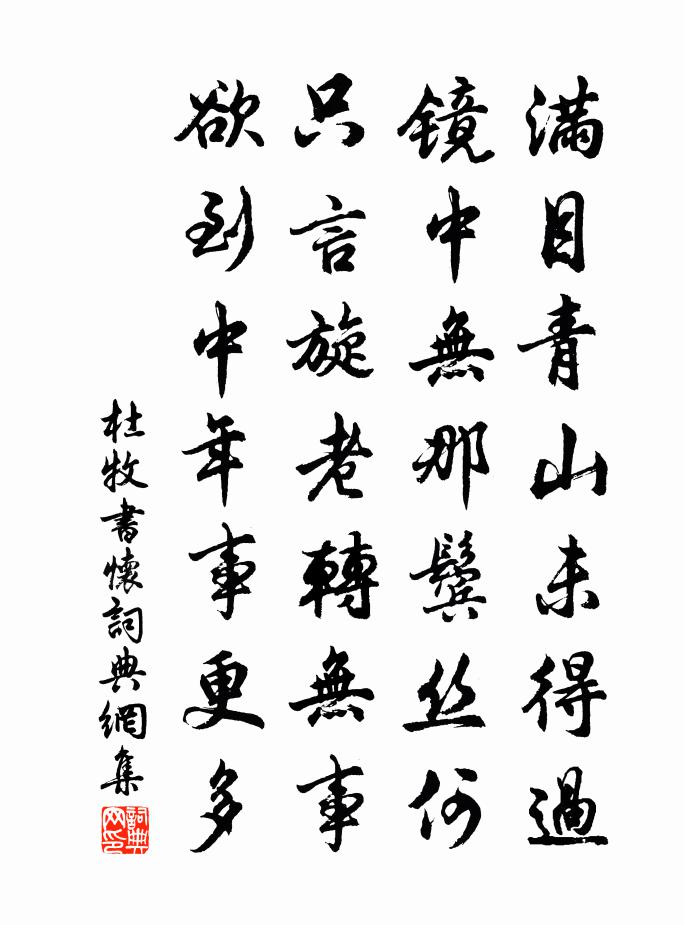 滿目青山未得過
鏡中無那鬢丝何
只言旋老轉無事
欲到中年事更多
杜牧書懷詞典網集
詞典网印